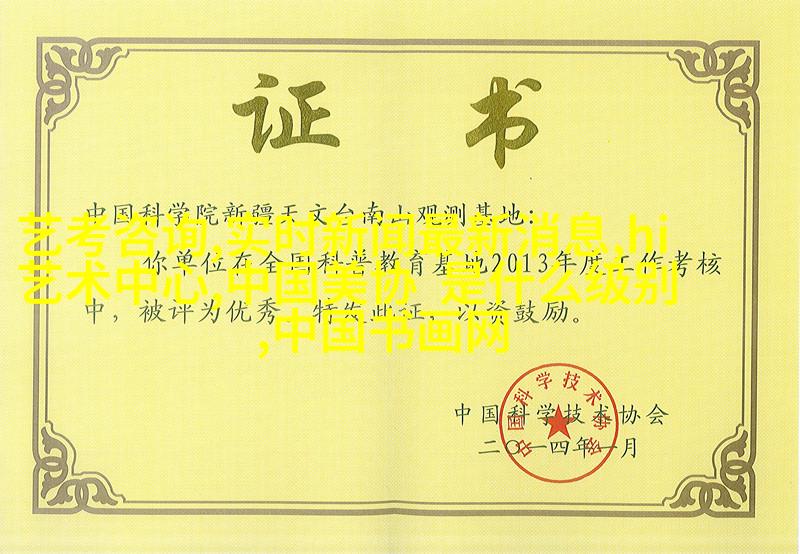 证 书
中国科学院新疆天文台南山观测基地:
艺考咨询,实时新闻最新消息,hi
你单位在全国科普教育基地2013年度工作考核
艺术中心,中国美协 是什么级别
中，被评为优秀 特发此证，以资鼓励。
,中国书画网
中国科学技术协会
中国科学技术协会
二〇一四年一月